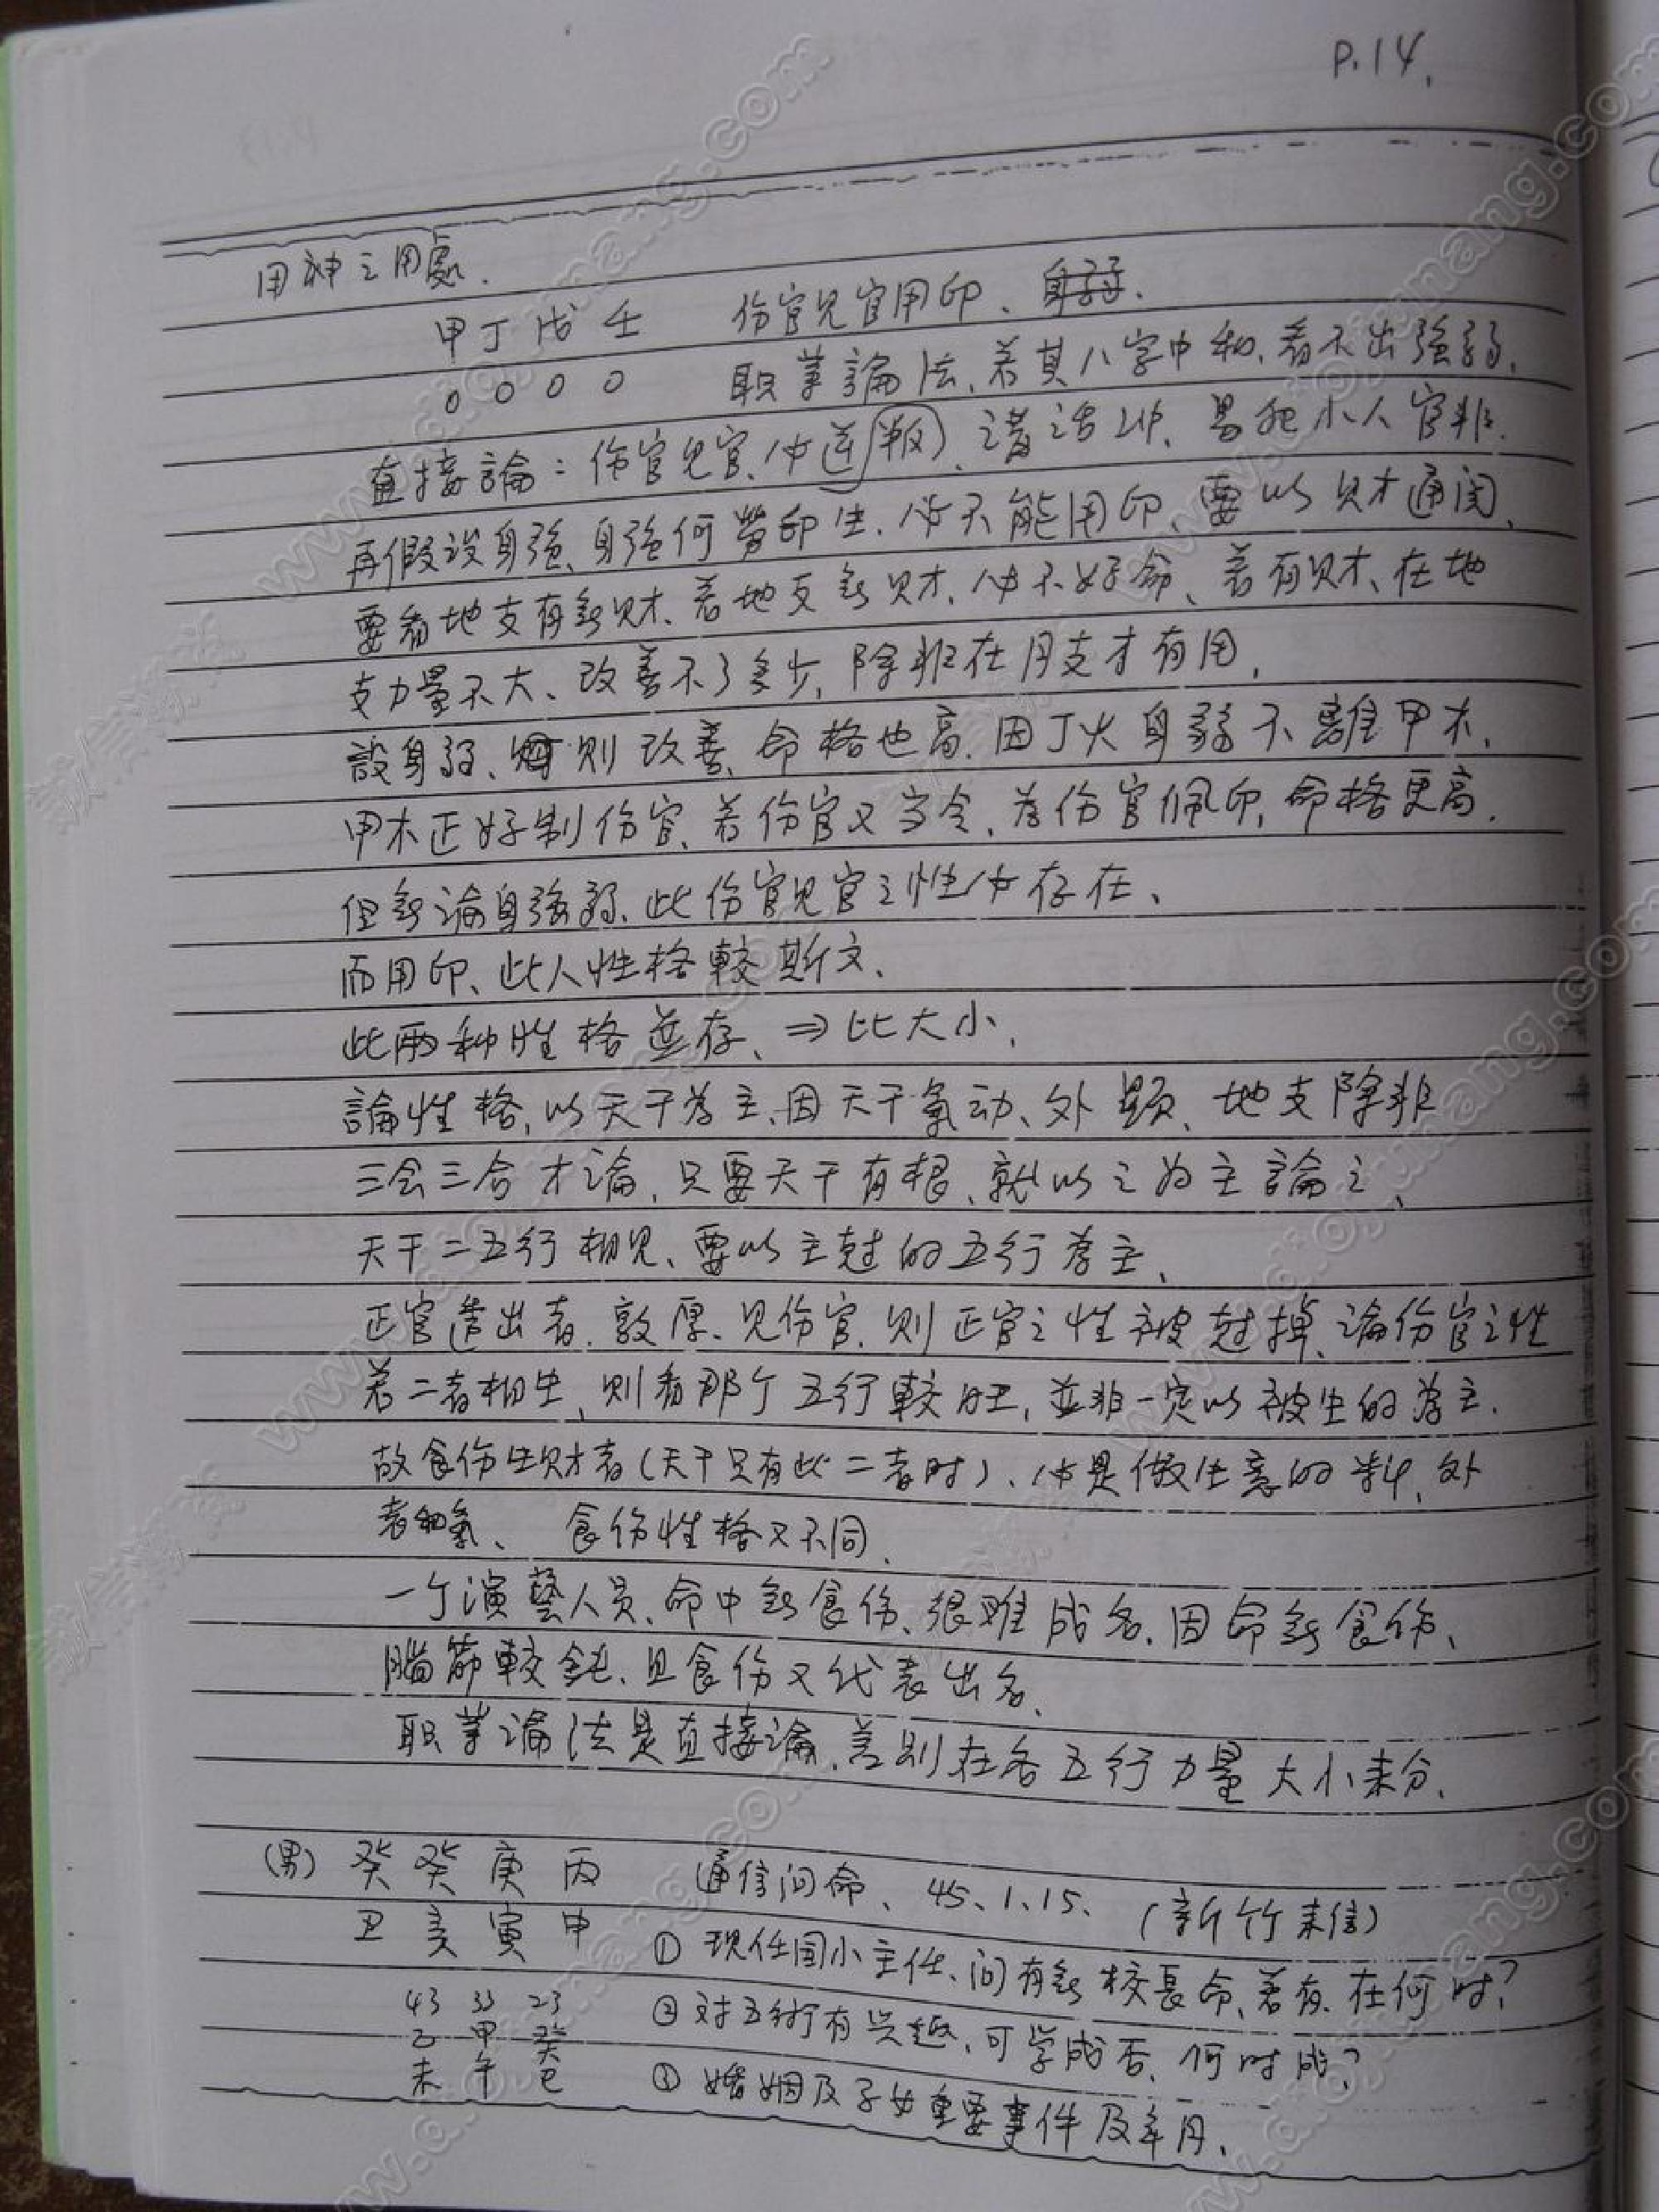 P.14.
用神之用處.
甲丁戊壬　伤官见官用印、身弱.
0 0 0 0　职业論法、若其八字中和、看不出強弱、
直接論：伤官见官、必逆叛、講话冲、易犯小人官非.
再假設身強、身強何劳印生、必不能用印、要以财通関、
要看地支有無财、若地支無财、必不好命、若有财、在地
支力量不大、改善不了多少、除非在月支才有用、
設身弱、则改善、命格也高、因丁火身弱不離甲木、
甲木正好制伤官、若伤官又当令、為伤官佩印、命格更高.
但無論身強弱、此伤官见官之性必存在、
而用印、此人性格較斯文、
此两种性格並存、⇒比大小、
論性格、以天干為主、因天干氣动、外顕、地支除非
三会三合才論、只要天干有根、就以之为主論之、
天干二五行相见、要以主尅的五行為主、
正官透出者、敦厚、见伤官、则正官之性被尅掉、論伤官之性
若二者相生、则看那个五行較旺、並非一定以被生的為主.
故食伤生财者(天干只有此二者时)、必是做生意的料、外
表和氣、　食伤性格又不同、
一个演藝人员、命中無食伤、很難成名、因命無食伤、
腦筋較鈍、且食伤又代表出名、
职业論法是直接論、差别在各五行力量大小来分、
(男) 癸癸庚丙　通信问命、45、1、15、(新竹来信)
丑亥寅申　① 现任国小主任、问有無校長命、若有、在何时?
43 33 23　② 对五術有兴趣、可学成否、何时成?
乙甲癸
未午巳　③ 婚姻及子女重要事件及年月、